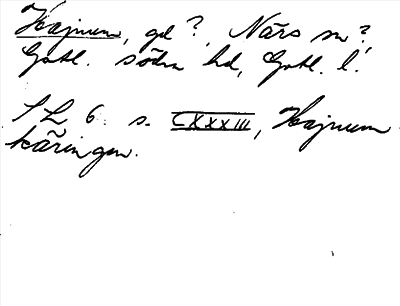 Hajnum, gd? Närs sn?,
Gotl. södra hd, Gotl. l.
SL 6 s. CXXXIII, Hajnum
käringen.